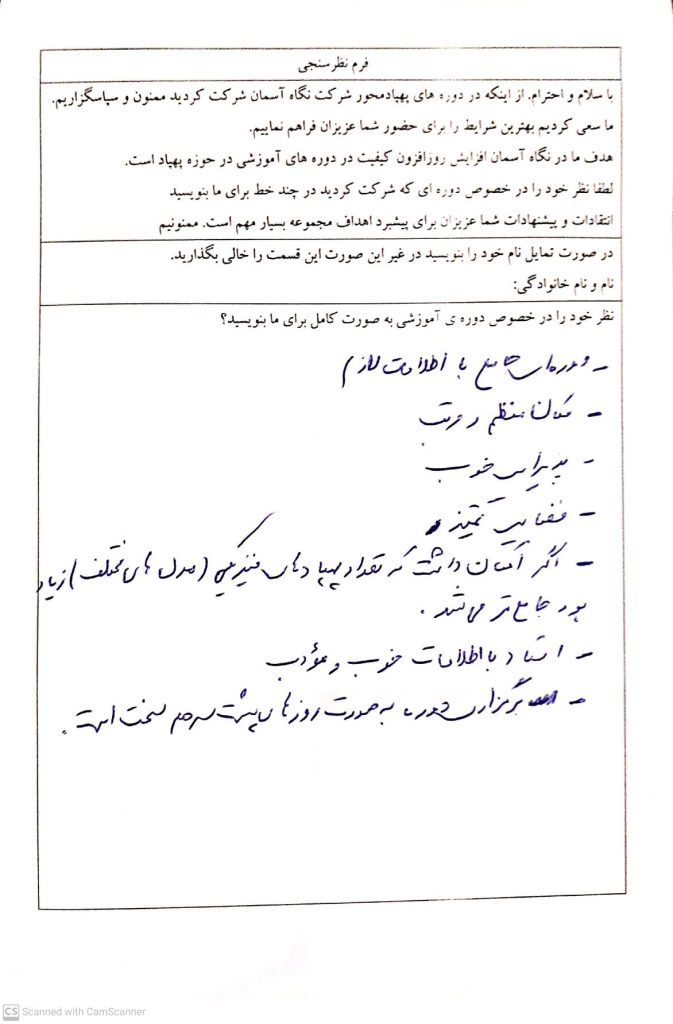 فرم نظرسنجی
با سلام و احترام. از اینکه در دوره های پهپادمحور شرکت نگاه آسمان شرکت کردید ممنون و سپاسگزاریم.
ما سعی کردیم بهترین شرایط را برای حضور شما عزیزان فراهم نماییم.
هدف ما در نگاه آسمان افزایش روزافزون کیفیت در دوره های آموزشی در حوزه پهپاد است.
لطفا نظر خود را در خصوص دوره ای که شرکت کردید در چند خط برای ما بنویسید
انتقادات و پیشنهادات شما عزیزان برای پیشبرد اهداف مجموعه بسیار مهم است. ممنونیم
در صورت تمایل نام خود را بنویسید در غیر این صورت این قسمت را خالی بگذارید.
نام و نام خانوادگی:
نظر خود را در خصوص دوره ی آموزشی به صورت کامل برای ما بنویسید؟
- دوره‌ای جامع با اطلاعات لازم
- مکان منظم و مرتب
- پذیرایی خوب
- فضایی تمیز
- اگر امکان داشت که تعداد پهپادهای فیزیکی (مدل های مختلف) زیاد
بود جامع تر می شد.
- استاد با اطلاعات خوب و مؤدب
- برگزاری دوره به صورت روزهای پشت سر هم سخت است.
CS Scanned with CamScanner